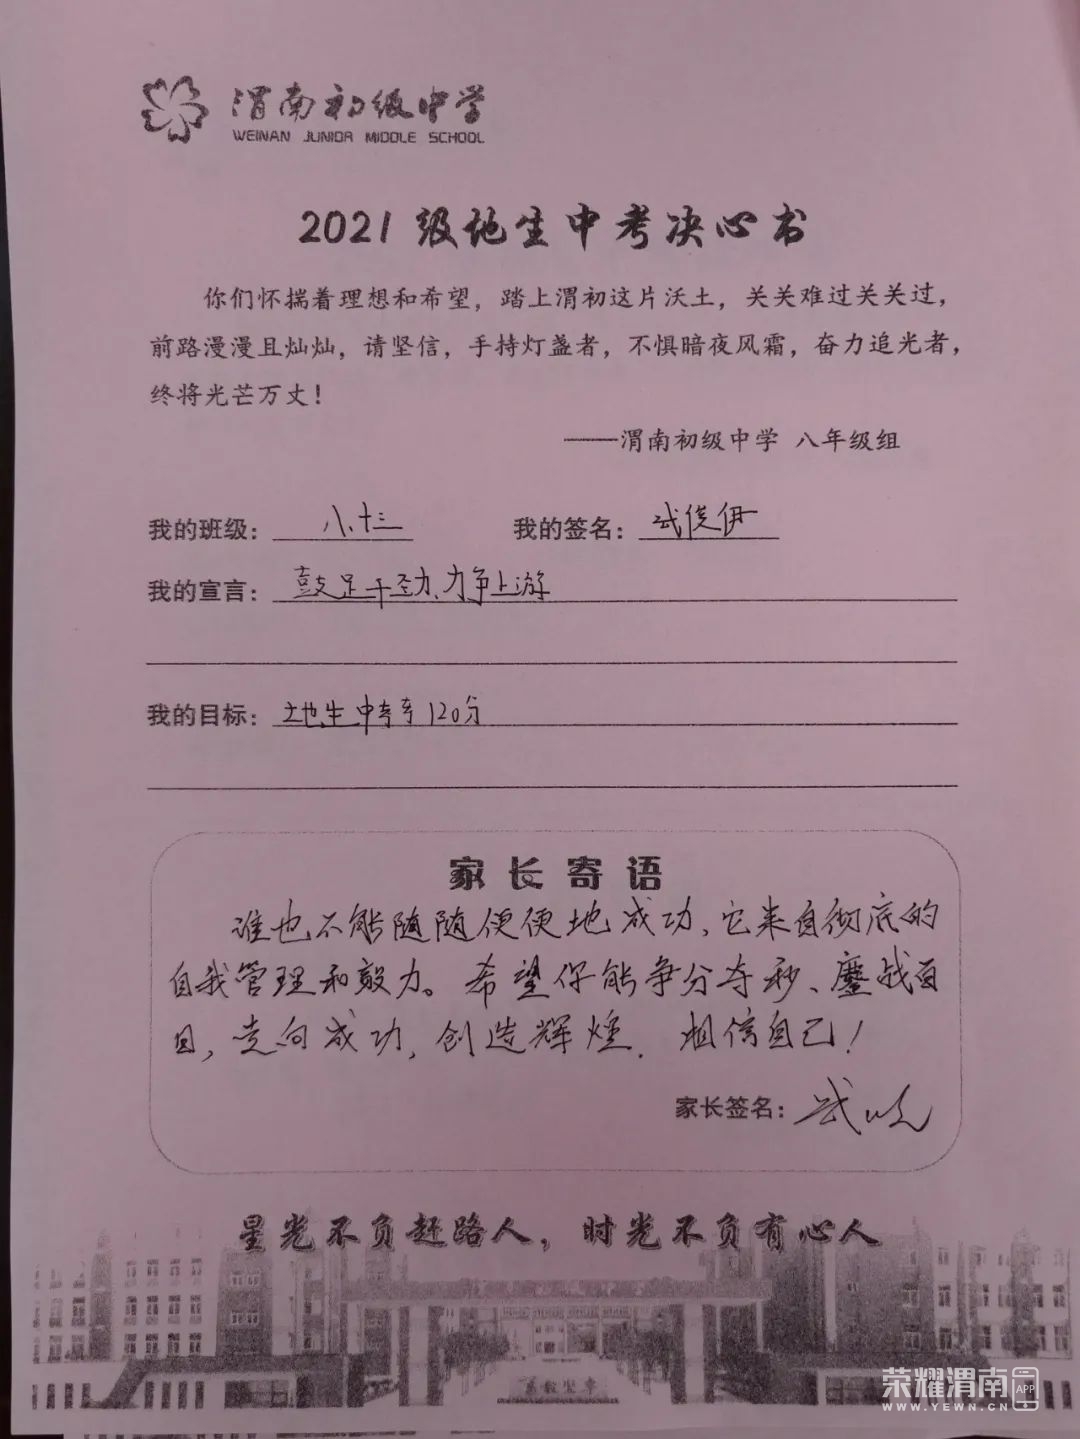 渭南初级中学
WEINAN JUNIOR MIDDLE SCHOOL
2021级地生中考决心书
你们怀揣着理想和希望，踏上渭初这片沃土，关关难过关关过，
前路漫漫且灿灿，请坚信，手持灯盏者，不惧暗夜风霜，奋力追光者，
终将光芒万丈！
——渭南初级中学 八年级组
我的班级：八.十三 我的签名：武俊伊
我的宣言：鼓足干劲、力争上游
我的目标：地生中考考120分
家长寄语
谁也不能随随便便地成功，它来自彻底的
自我管理和毅力。希望你能争分夺秒、鏖战百
日，走向成功，创造辉煌. 相信自己！
家长签名：武
星光不负赶路人，时光不负有心人
荣耀渭南
APP
WWW.YEWN.CN